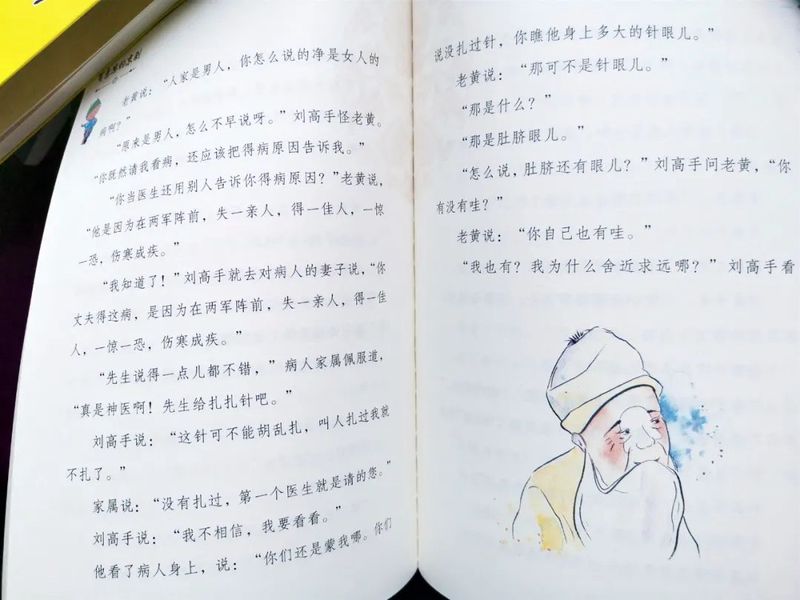 老黄说：“人家是男人，你怎么说的净是女人的
病啊？”
“原来是男人，怎么不早说呀。”刘高手怪老黄。
“你既然请我看病，还应该把得病原因告诉我。”
“你当医生还用别人告诉你得病原因？”老黄说，
“他是因为在两军阵前，失一亲人，得一佳人，一惊
一恐，伤寒成疾。”
“我知道了！”刘高手就去对病人的妻子说，“你
丈夫得这病，是因为在两军阵前，失一亲人，得一佳
人，一惊一恐，伤寒成疾。”
“先生说得一点儿都不错，”病人家属佩服道，
“真是神医啊！先生给扎扎针吧。”
刘高手说：“这针可不能胡乱扎，叫人扎过我就
不扎了。”
家属说：“没有扎过，第一个医生就是请的您。”
刘高手说：“我不相信，我要看看。”
他看了病人身上，说：“你们还是蒙我哪。你们
说没扎过针，你瞧他身上多大的针眼儿。”
老黄说：“那可不是针眼儿。”
“那是什么？”
“那是肚脐眼儿。”
“怎么说，肚脐还有眼儿？”刘高手问老黄，“你
有没有哇？”
老黄说：“你自己也有哇。”
“我也有？我为什么舍近求远哪？”刘高手看